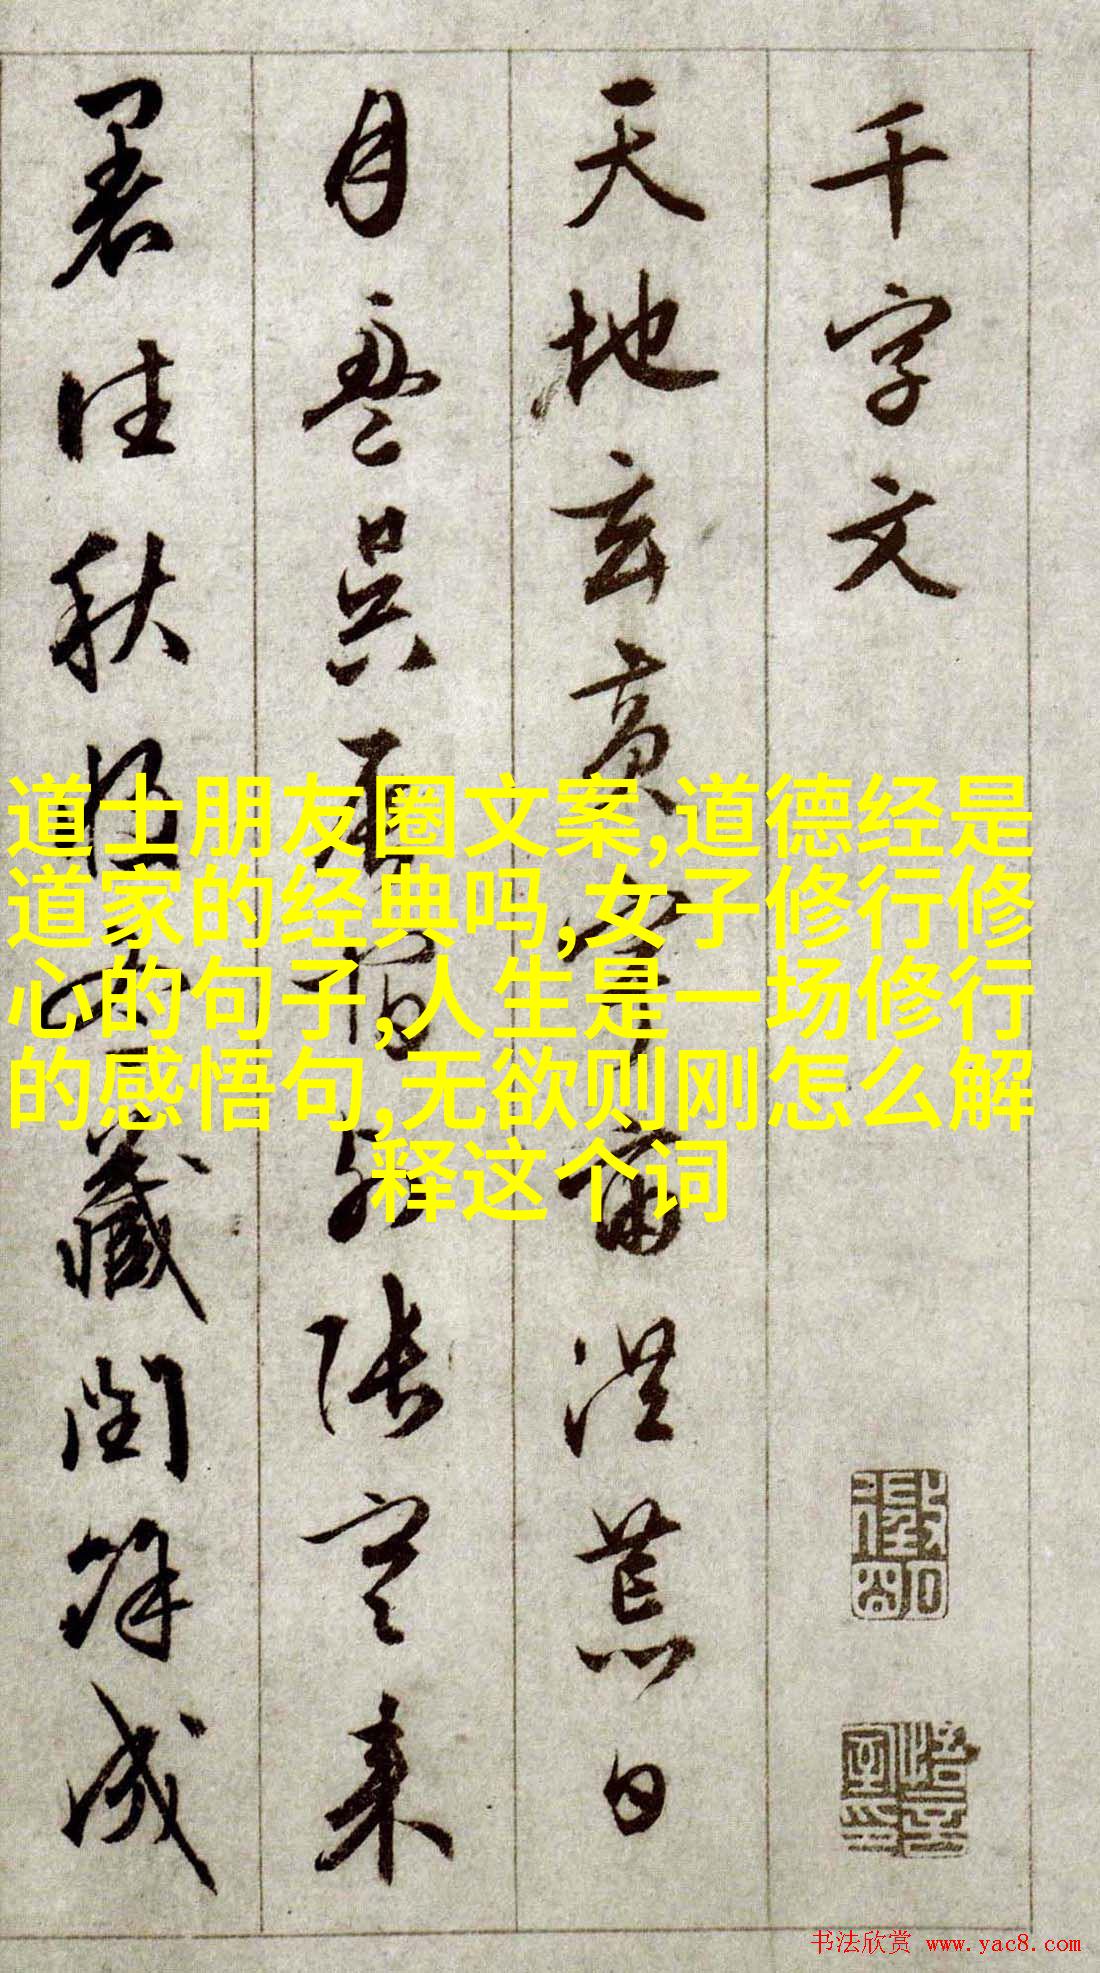 千字文
天地玄黃宇宙洪荒日
月盈昃辰宿列張寒來
暑往秋收冬藏閏餘成
道士朋友圈文案,道德经是
道家的经典吗,女子修行修
心的句子,人生是一场修行
的感悟句,无欲则刚怎么解
释这个词
书法欣赏 www.yac8.com